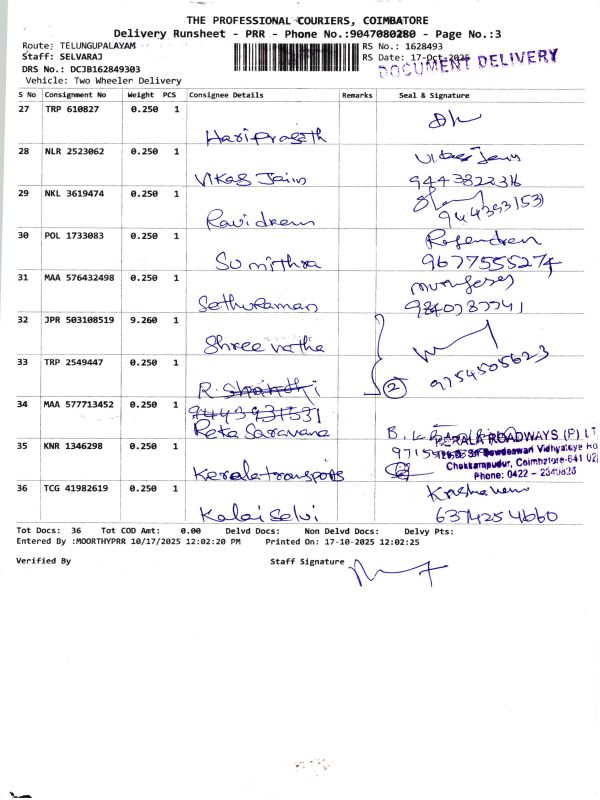 THE PROFESSIONAL COURIERS, COIMBATORE
Delivery Runsheet - PRR - Phone No.:9047080280 - Page No.:3
Route: TELUNGUPALAYAM RS No.: 1628493
Staff: SELVARAJ RS Date: 17-Oct-2025
DOCUMENT DELIVERY
DRS No.: DCJB162849303
Vehicle: Two Wheeler Delivery
S No Consignment No Weight PCS Consignee Details Remarks Seal & Signature
27 TRP 610827 0.250 1
Hariprasath
28 NLR 2523062 0.250 1
Vikas Jain Vikas Jain
9443822316
29 NKL 3619474 0.250 1
Ravi 9443931531
30 POL 1733083 0.250 1 Rajendren
Sumithra 9677555274
31 MAA 576432498 0.250 1
Sethuraman
32 JPR 503108519 9.260 1
Shree
33 TRP 2549447 0.250 1 9754505623
R. Shandhi 2
34 MAA 577713452 0.250 1 9443931531
Reta Saravana
KERALA ROADWAYS (P) LT
35 KNR 1346298 0.250 1 Sri Sowdeswari Vidhyalaya Ro
Chekkampudur, Coimbatore-641 02
Kerala transports Phone: 0422 -
36 TCG 41982619 0.250 1
Kalai Selvi 6374254660
Tot Docs: 36 Tot COD Amt: 0.00 Delvd Docs: Non Delvd Docs: Delvy Pts:
Entered By :MOORTHYPRR 10/17/2025 12:02:20 PM Printed On: 17-10-2025 12:02:25
Verified By Staff Signature